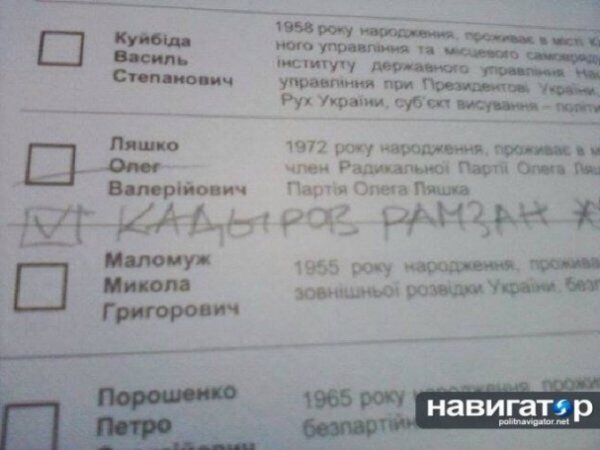 Куйбіда
Василь
Степанович
1958 року народження, проживає в місті
ного управління та місцевого
інституту державного управління
управління при Президентові України,
Рух України, суб'єкт висування –
Ляшко
Олег
Валерійович
1972 року народження, проживає в
член Радикальної Партії Олега
Партія Олега Ляшка
КАДЫРОВ РАМЗАН
Маломуж
Микола
Григорович
1955 року народження,
зовнішньої розвідки України,
Порошенко
Петро
1965 року народження,
НАВИГАТОР
politnavigator.net